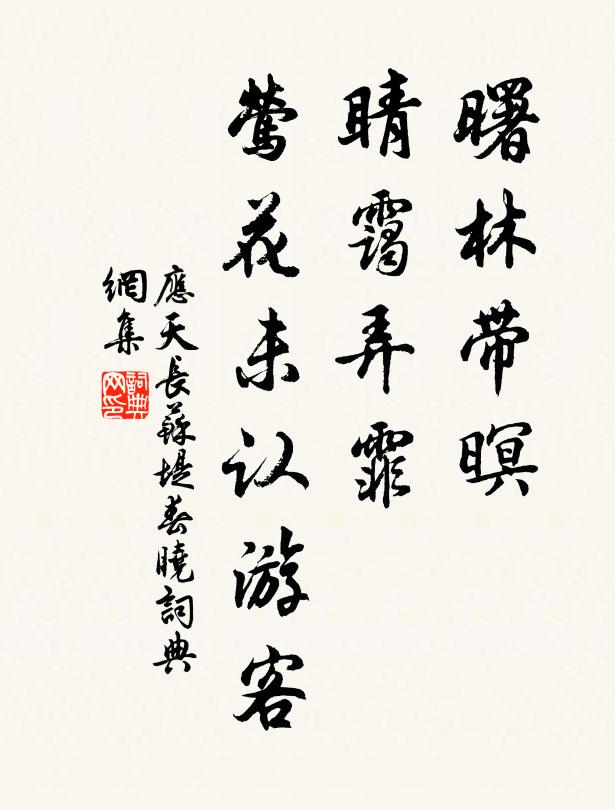 曙林带暝
晴霭弄霏
莺花未认游客
應天長蘇堤春曉詞典
網集
詞典
网印